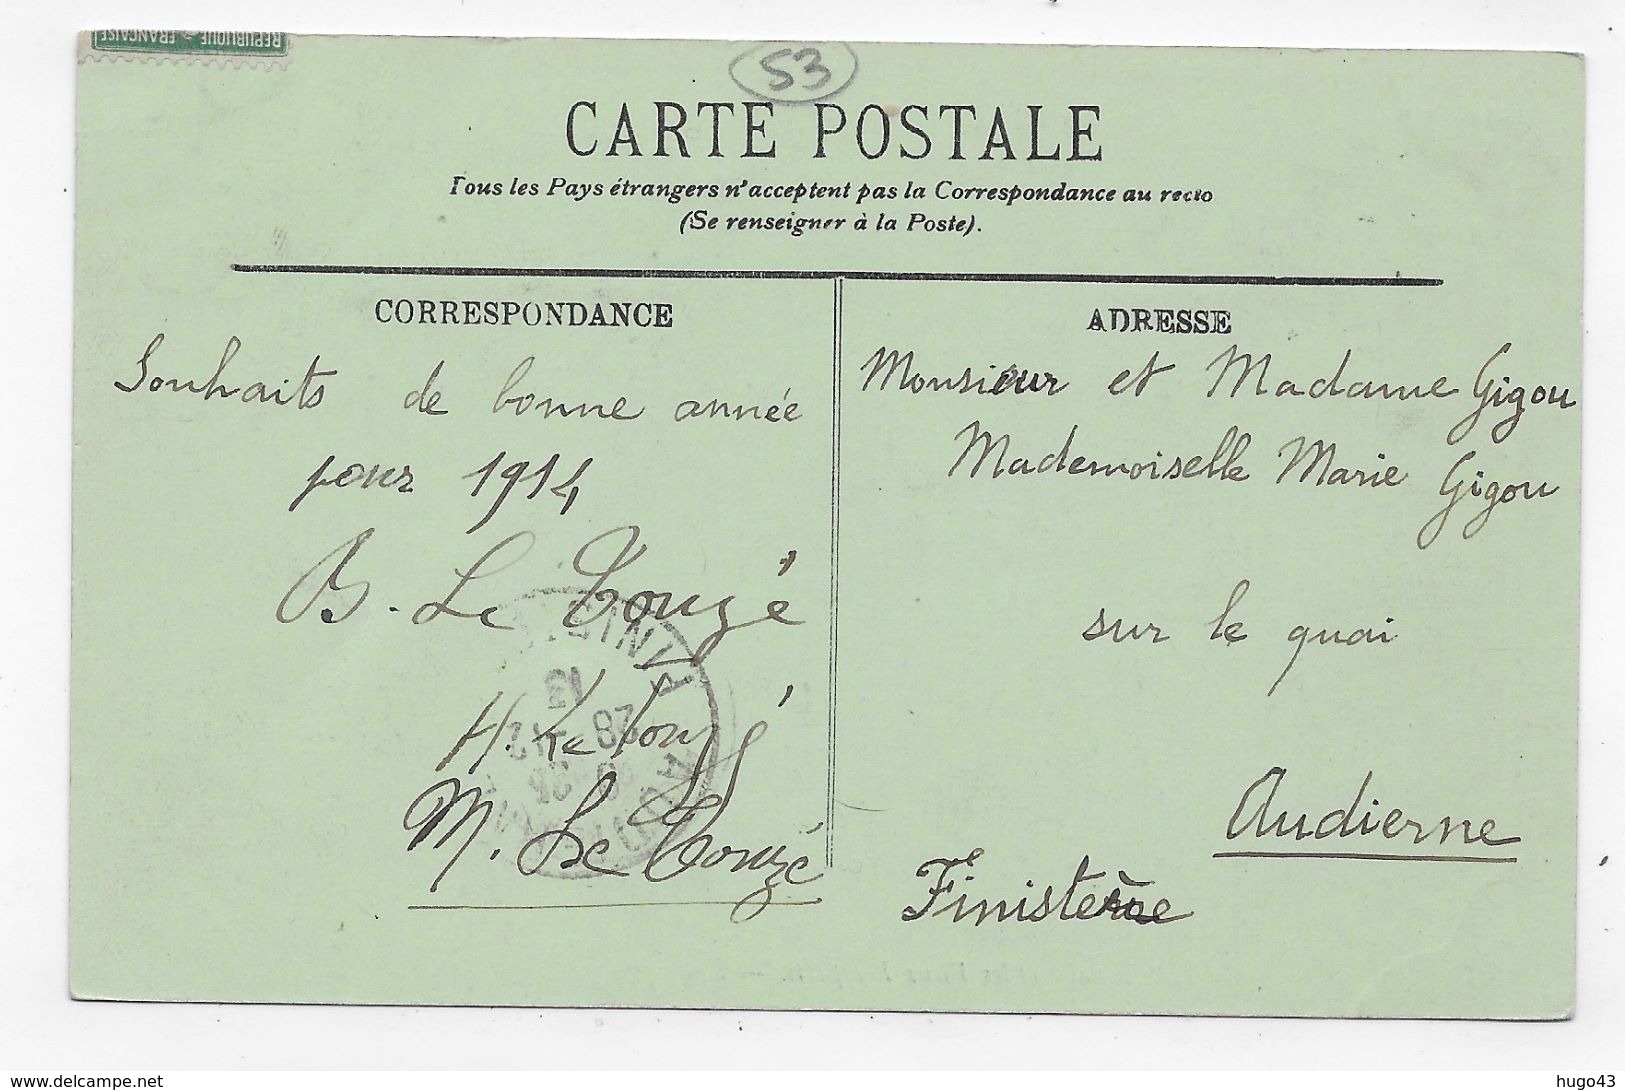 REPUBLIQUE FRANÇAISE
53
CARTE POSTALE
Tous les Pays étrangers n'acceptent pas la Correspondance au recto
(Se renseigner à la Poste).
CORRESPONDANCE
Souhaits de bonne année
pour 1914
B. Le Touzé
H. Le Touzé
M. Le Touzé
13
28
ADRESSE
Monsieur et Madame Gigou
Mademoiselle Marie Gigou
sur le quai
Audierne
Finistère
www.delcampe.net
hugo43